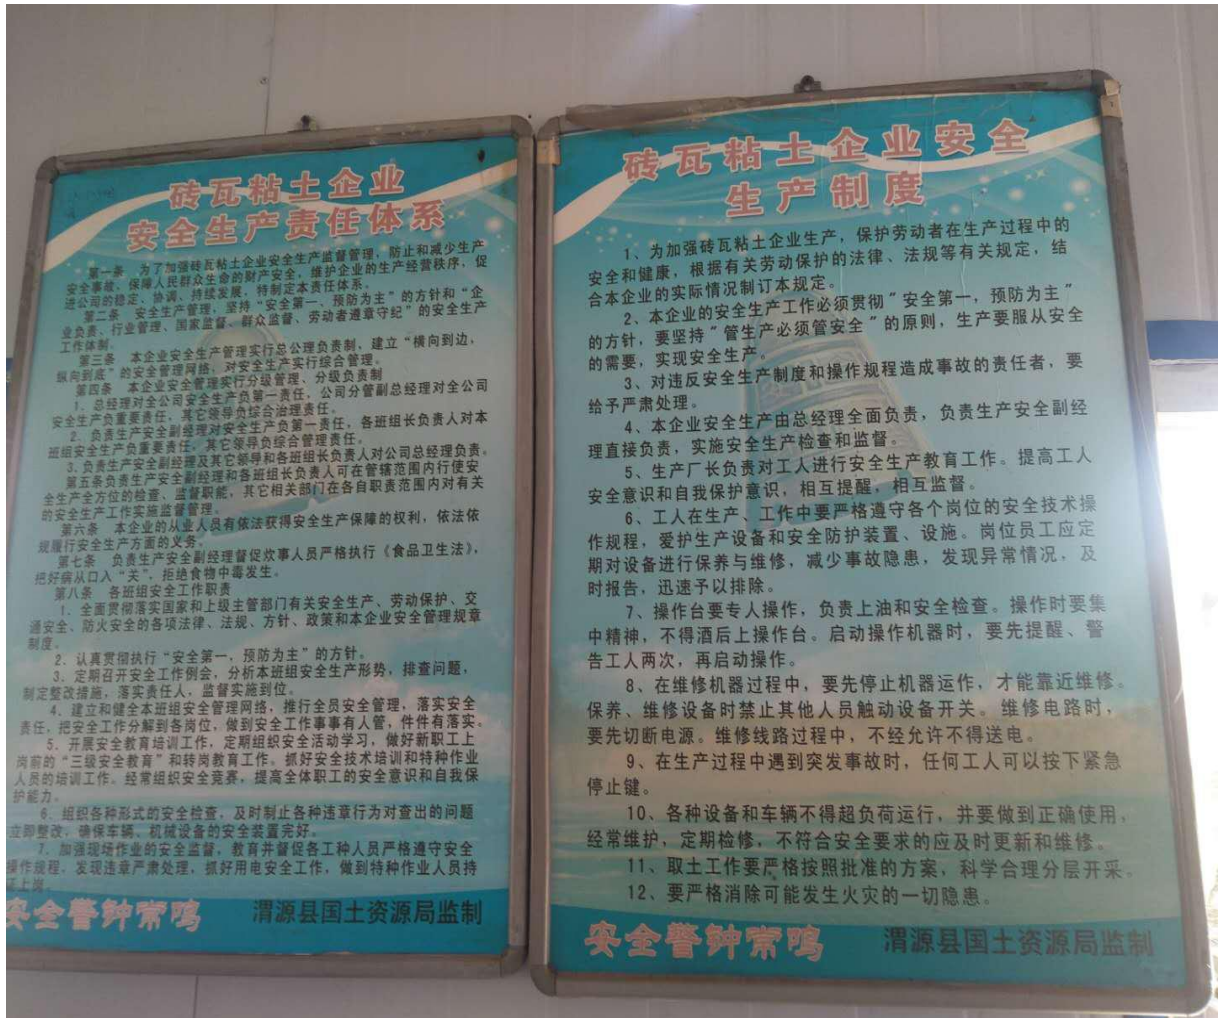 砖瓦粘土企业
安全生产责任体系
第一条 为了加强砖瓦粘土企业安全生产监督管理，防止和减少生产
安全事故、保障人民群众生命的财产安全，维护企业的生产经营秩序，促
进公司的稳定、协调、持续发展，特制定本责任体系。
第二条 安全生产管理，坚持“安全第一、预防为主”的方针和“企
业负责、行业管理、国家监督、群众监督、劳动者遵章守纪”的安全生产
工作体制。
第三条 本企业安全生产管理实行总公理负责制，建立“横向到边，
纵向到底”的安全管理网络，对安全生产实行综合管理。
第四条 本企业安全管理实行分级管理、分级负责制
1、总经理对全公司安全生产负第一责任，公司分管副总经理对全公司
安全生产负重要责任，其它领导负综合治理责任。
2、负责生产安全副经理对安全生产负第一责任，各班组长负责人对本
班组安全生产负重要责任，其它领导负综合管理责任。
3、负责生产安全副经理及其它领导和各班组长负责人对公司总经理负责。
第五条负责生产安全副经理和各班组长负责人可在管辖范围内行使安
全生产全方位的检查、监督职能，其它相关部门在各自职责范围内对有关
的安全生产工作实施监督管理。
第六条 本企业的从业人员有依法获得安全生产保障的权利，依法依
规履行安全生产方面的义务。
第七条 负责生产安全副经理督促炊事人员严格执行《食品卫生法》，
把好病从口入“关”，拒绝食物中毒发生。
第八条 各班组安全工作职责
1、全面贯彻落实国家和上级主管部门有关安全生产、劳动保护、交
通安全、防火安全的各项法律、法规、方针、政策和本企业安全管理规章
制度。
2、认真贯彻执行“安全第一，预防为主”的方针。
3、定期召开安全工作例会，分析本班组安全生产形势，排查问题，
制定整改措施，落实责任人，监督实施到位。
4、建立和健全本班组安全管理网络，推行全员安全管理，落实安全
责任，把安全工作分解到各岗位，做到安全工作事事有人管，件件有落实。
5、开展安全教育培训工作，定期组织安全活动学习，做好新职工上
岗前的“三级安全教育”和转岗教育工作。抓好安全技术培训和特种作业
人员的培训工作。经常组织安全竞赛，提高全体职工的安全意识和自我保
护能力。
6、组织各种形式的安全检查，及时制止各种违章行为对查出的问题
立即整改，确保车辆、机械设备的安全装置完好。
7、加强现场作业的安全监督，教育并督促各工种人员严格遵守安全
操作规程，发现违章严肃处理，抓好用电安全工作，做到特种作业人员持
证上岗。
安全警钟常鸣 渭源县国土资源局监制
砖瓦粘土企业安全
生产制度
1、为加强砖瓦粘土企业生产，保护劳动者在生产过程中的
安全和健康，根据有关劳动保护的法律、法规等有关规定，结
合本企业的实际情况制订本规定。
2、本企业的安全生产工作必须贯彻"安全第一，预防为主"
的方针，要坚持"管生产必须管安全"的原则，生产要服从安全
的需要，实现安全生产。
3、对违反安全生产制度和操作规程造成事故的责任者，要
给予严肃处理。
4、本企业安全生产由总经理全面负责，负责生产安全副经
理直接负责，实施安全生产检查和监督。
5、生产厂长负责对工人进行安全生产教育工作。提高工人
安全意识和自我保护意识，相互提醒，相互监督。
6、工人在生产、工作中要严格遵守各个岗位的安全技术操
作规程，爱护生产设备和安全防护装置、设施。岗位员工应定
期对设备进行保养与维修，减少事故隐患，发现异常情况，及
时报告，迅速予以排除。
7、操作台要专人操作，负责上油和安全检查。操作时要集
中精神，不得酒后上操作台。启动操作机器时，要先提醒、警
告工人两次，再启动操作。
8、在维修机器过程中，要先停止机器运作，才能靠近维修。
保养、维修设备时禁止其他人员触动设备开关。维修电路时，
要先切断电源。维修线路过程中，不经允许不得送电。
9、在生产过程中遇到突发事故时，任何工人可以按下紧急
停止键。
10、各种设备和车辆不得超负荷运行，并要做到正确使用，
经常维护，定期检修，不符合安全要求的应及时更新和维修。
11、取土工作要严格按照批准的方案，科学合理分层开采。
12、要严格消除可能发生火灾的一切隐患。
安全警钟常鸣 渭源县国土资源局监制